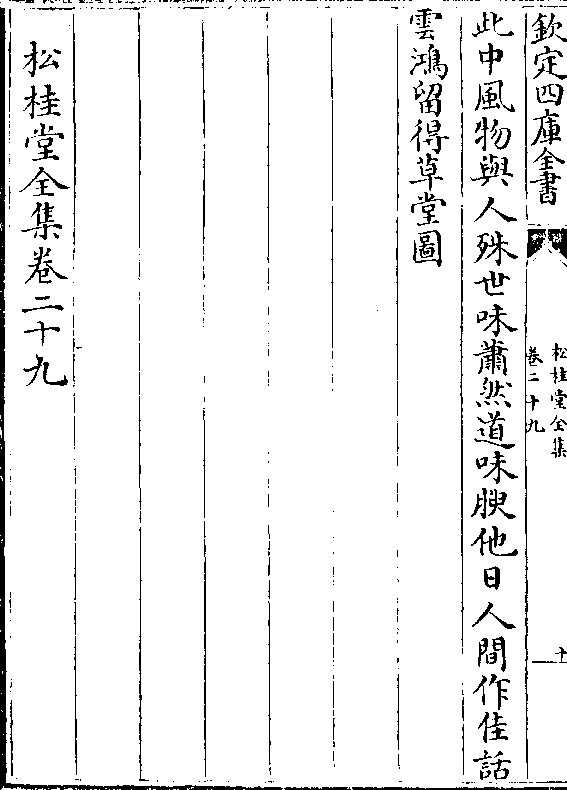 欽定四庫全書
松桂堂全集
卷二十九
十
此中風物與人殊世味蕭然道味腴他日人間作佳話
雲鴻留得草堂圖
松桂堂全集卷二十九